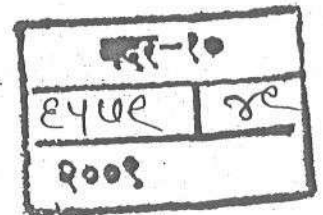 बदर-१०
६५७९ ४९
२००९